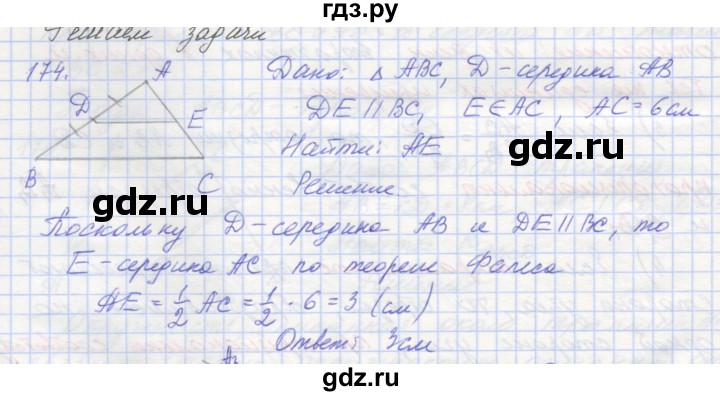 гдз.ру
Решаем задачи
174.
A
D
E
B
C
Дано: △ ABC, D - середина AB
DE || BC, E∈AC, AC = 6 см
Найти: AE
Решение.
Поскольку D - середина AB и DE || BC, то
E - середина AC по теореме Фалеса
AE = 1/2 AC = 1/2 · 6 = 3 (см)
Ответ: 3 см
gdz.ru
gdz.ru
gdz.ru
gdz.ru
gdz.ru